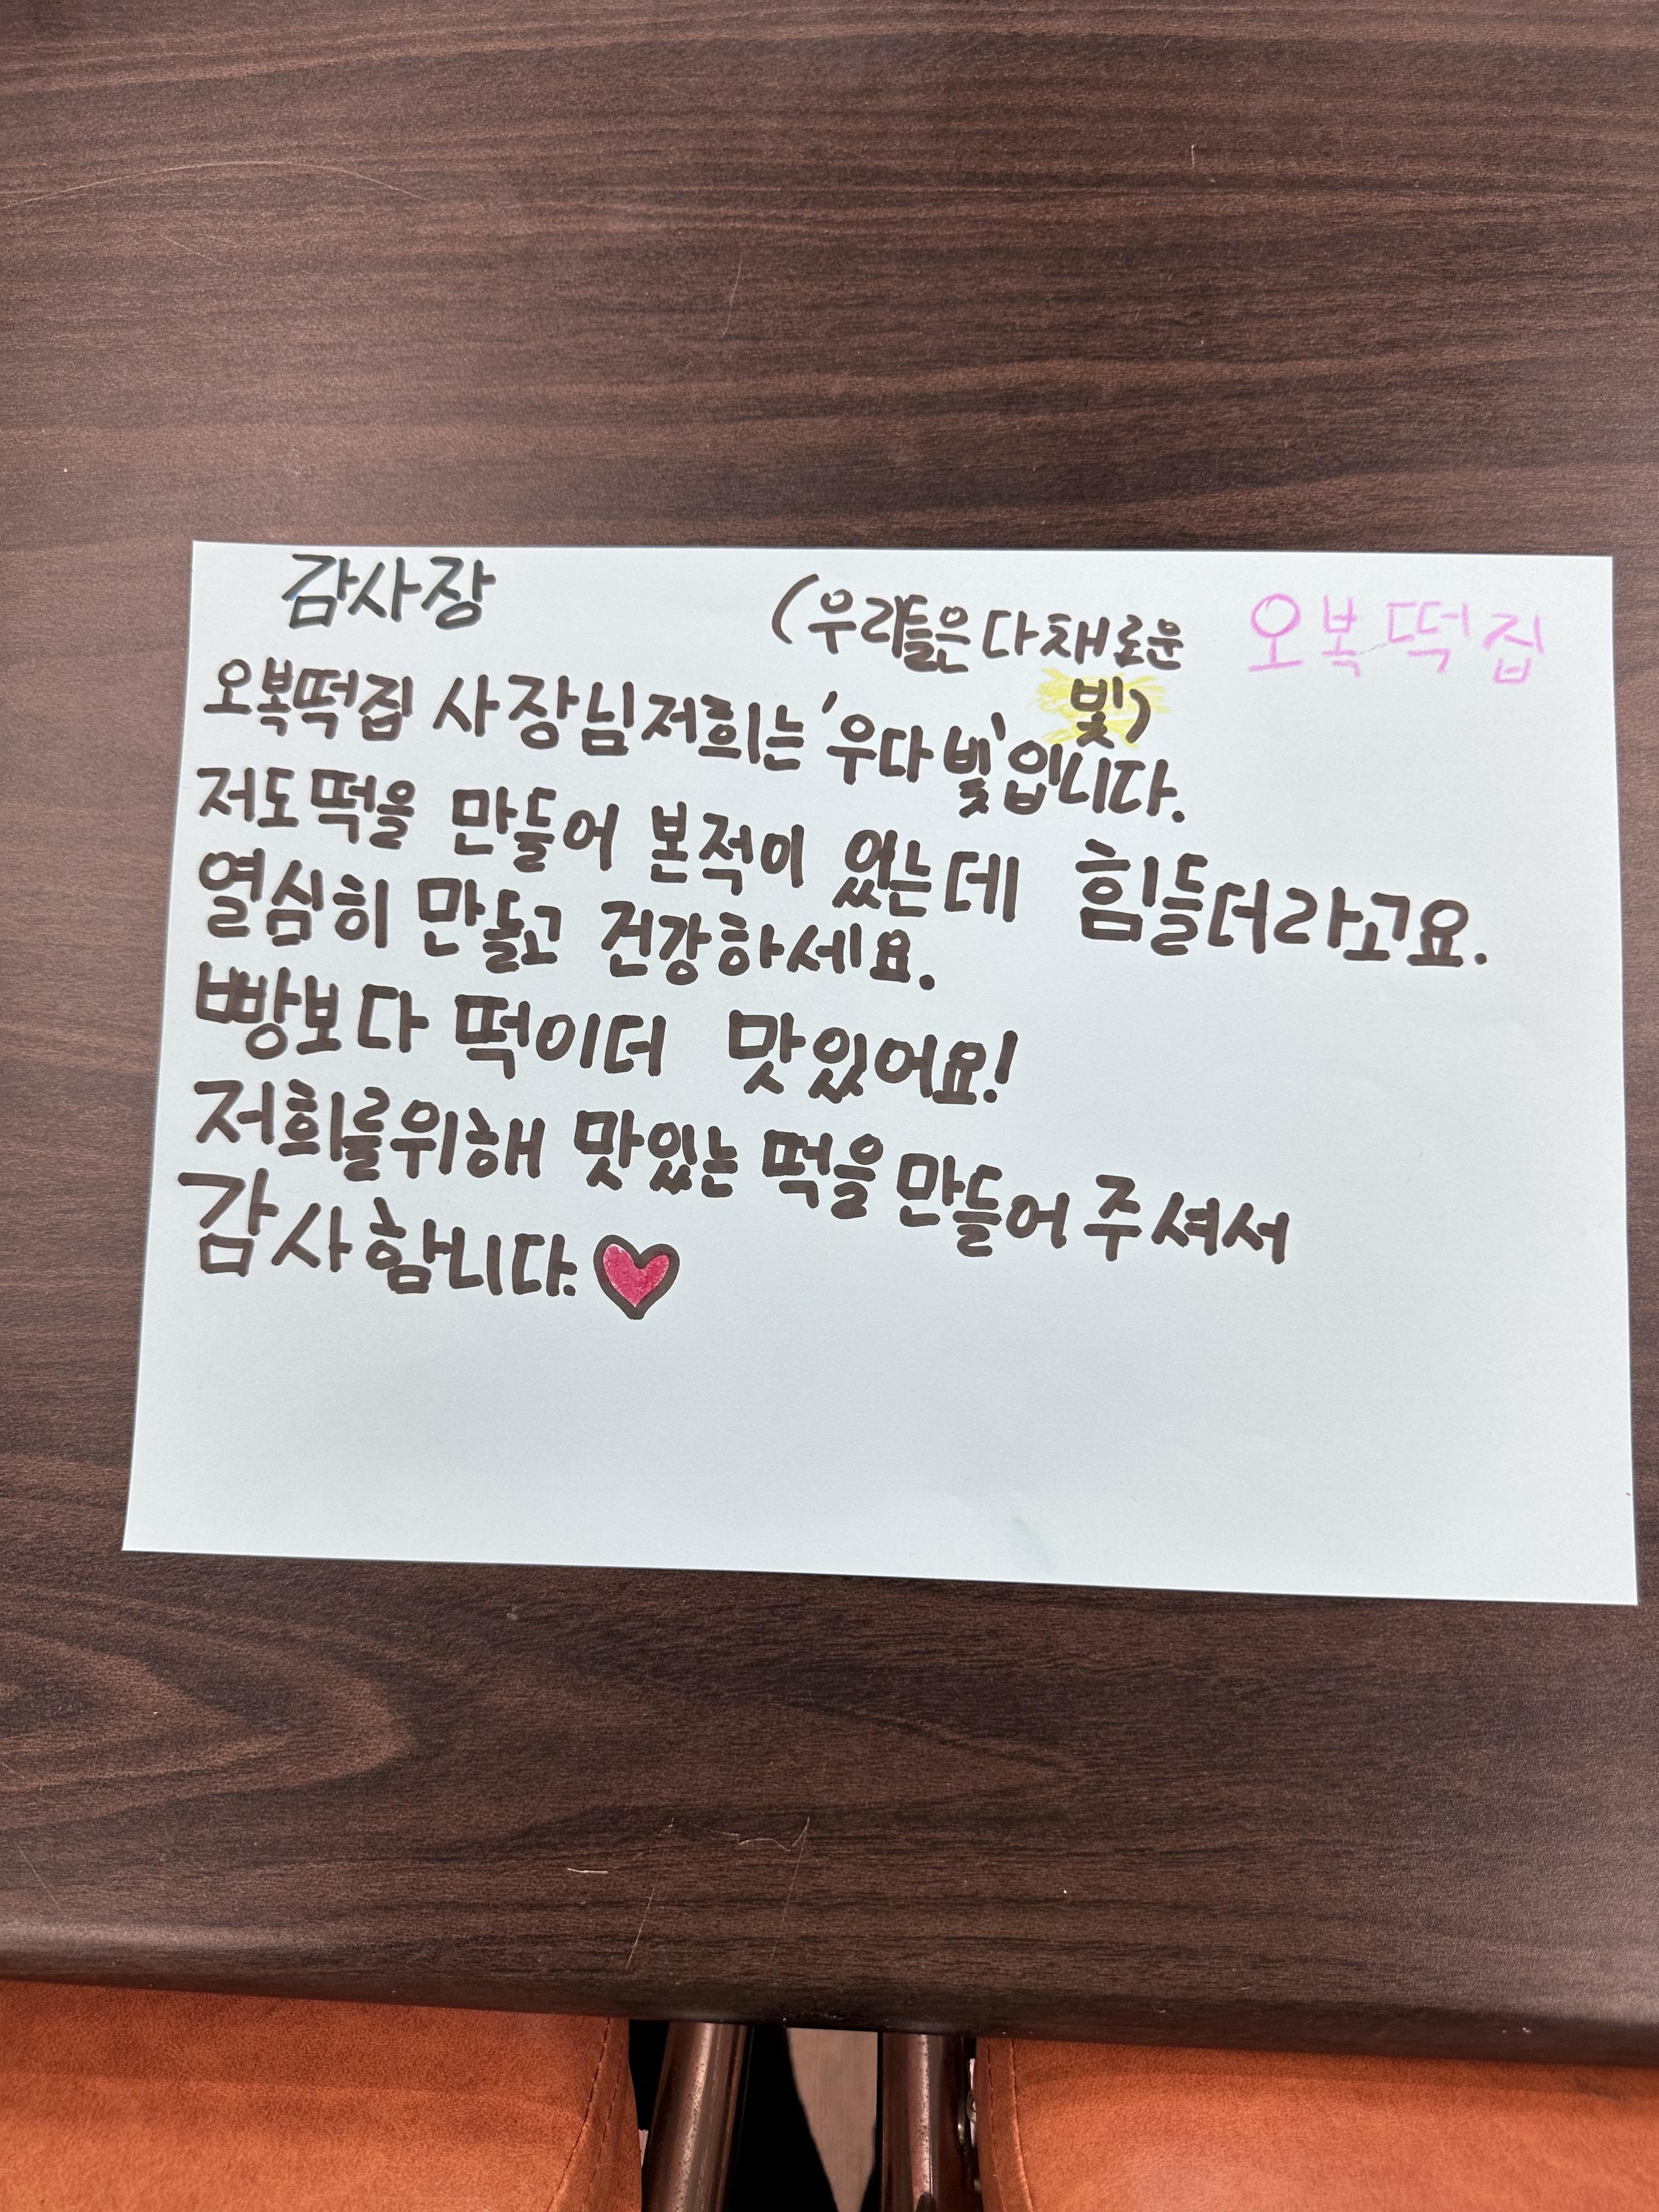 감사장
(우리들은 다채로운
빛)
오복떡집
오복떡집 사장님 저희는 '우다빛'입니다.
저도 떡을 만들어 본적이 있는데 힘들더라고요.
열심히 만들고 건강하세요.
빵보다 떡이더 맛있어요!
저희를위해 맛있는 떡을 만들어 주셔서
감사합니다.♥